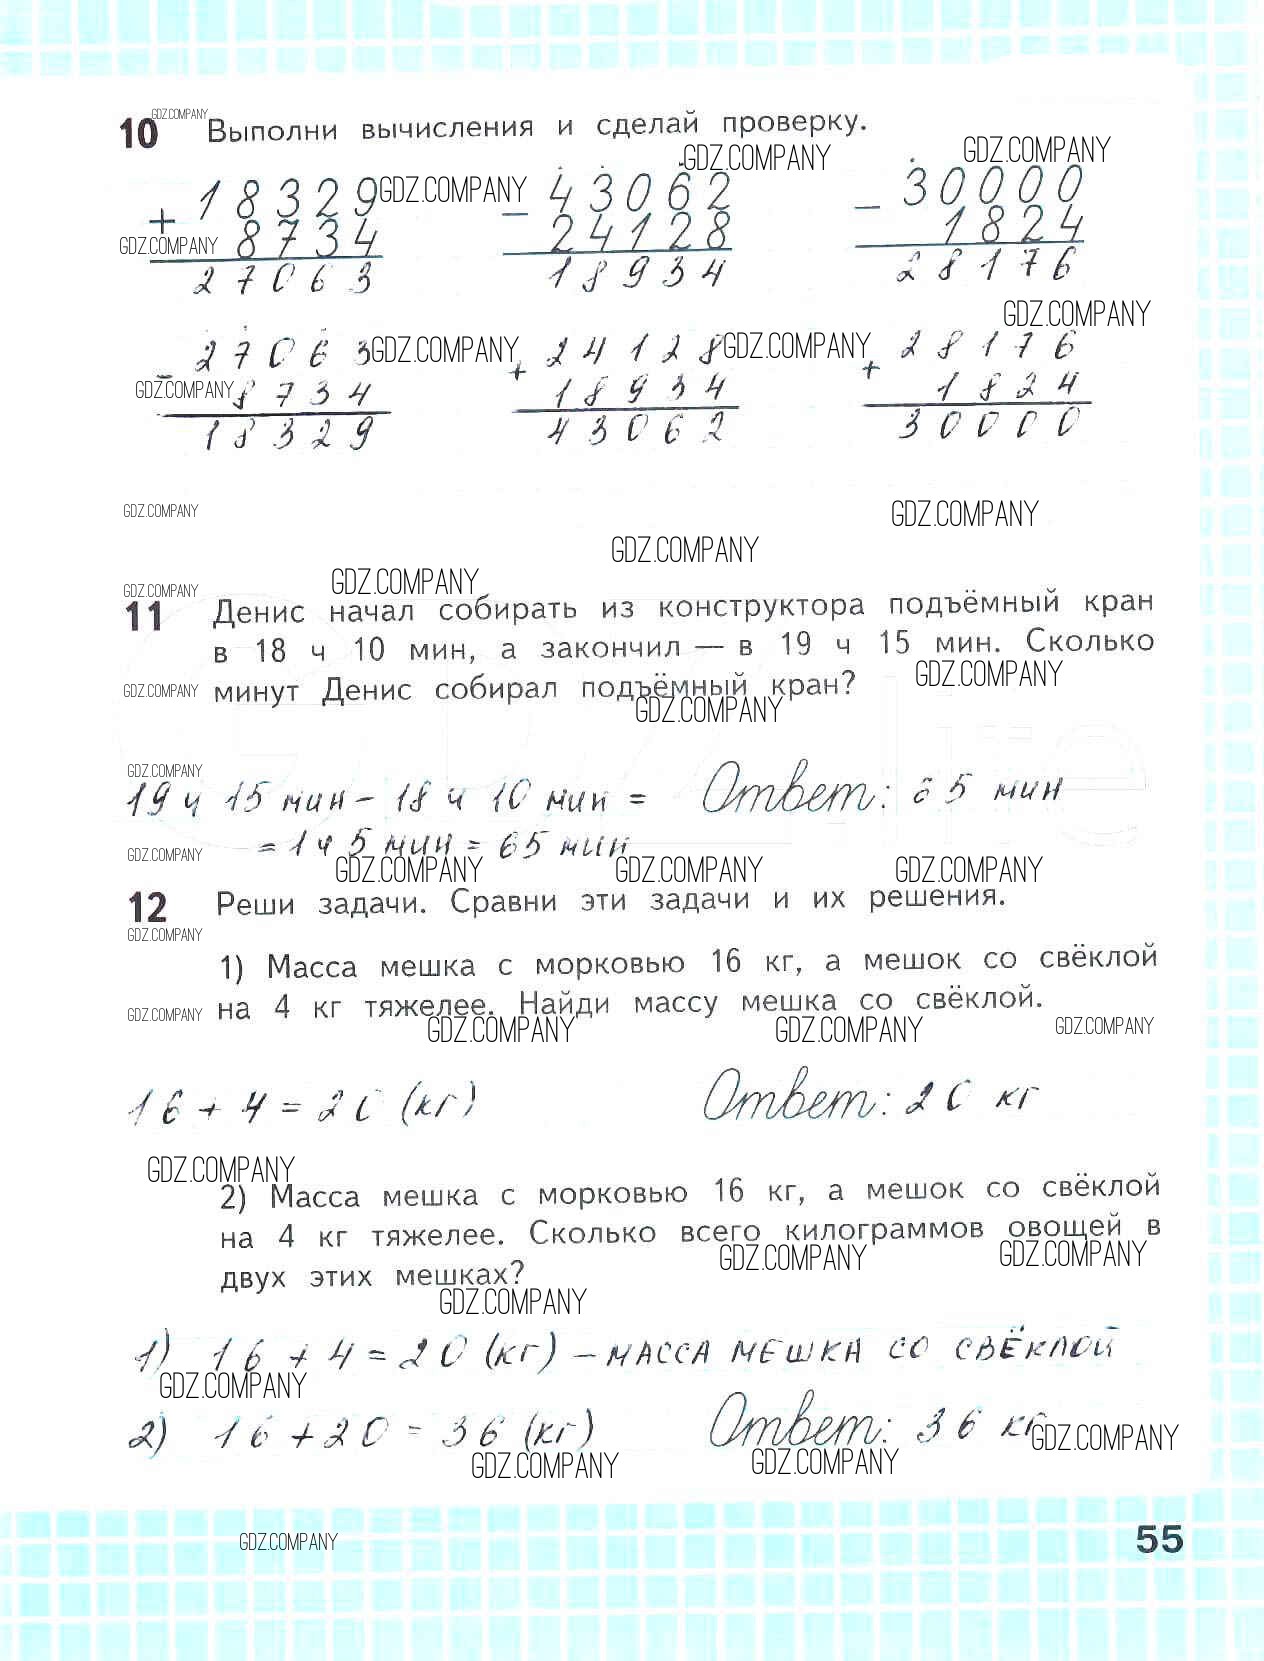 GDZ.COMPANY
10 Выполни вычисления и сделай проверку.
GDZ.COMPANY GDZ.COMPANY
+ 18329 GDZ.COMPANY - 43062 - 30000
GDZ.COMPANY 8734 24128 1824
27063 18934 28176
GDZ.COMPANY
- 27063 GDZ.COMPANY + 24128 GDZ.COMPANY + 28176
GDZ.COMPANY 8734 18934 1824
18329 43062 30000
GDZ.COMPANY GDZ.COMPANY
GDZ.COMPANY
GDZ.COMPANY GDZ.COMPANY
11 Денис начал собирать из конструктора подъёмный кран
в 18 ч 10 мин, а закончил — в 19 ч 15 мин. Сколько
GDZ.COMPANY минут Денис собирал подъёмный кран? GDZ.COMPANY
GDZ.COMPANY
GDZ.COMPANY
19 ч 15 мин - 18 ч 10 мин = Ответ: 65 мин
= 1 ч 5 мин = 65 мин
GDZ.COMPANY GDZ.COMPANY GDZ.COMPANY GDZ.COMPANY
12 Реши задачи. Сравни эти задачи и их решения.
GDZ.COMPANY
1) Масса мешка с морковью 16 кг, а мешок со свёклой
GDZ.COMPANY на 4 кг тяжелее. Найди массу мешка со свёклой.
GDZ.COMPANY GDZ.COMPANY GDZ.COMPANY
16 + 4 = 20 (кг) Ответ: 20 кг
GDZ.COMPANY
2) Масса мешка с морковью 16 кг, а мешок со свёклой
на 4 кг тяжелее. Сколько всего килограммов овощей в
GDZ.COMPANY GDZ.COMPANY
двух этих мешках?
GDZ.COMPANY
1) 16 + 4 = 20 (кг) - масса мешка со свёклой
GDZ.COMPANY
2) 16 + 20 = 36 (кг) Ответ: 36 кг GDZ.COMPANY
GDZ.COMPANY GDZ.COMPANY
GDZ.COMPANY 55